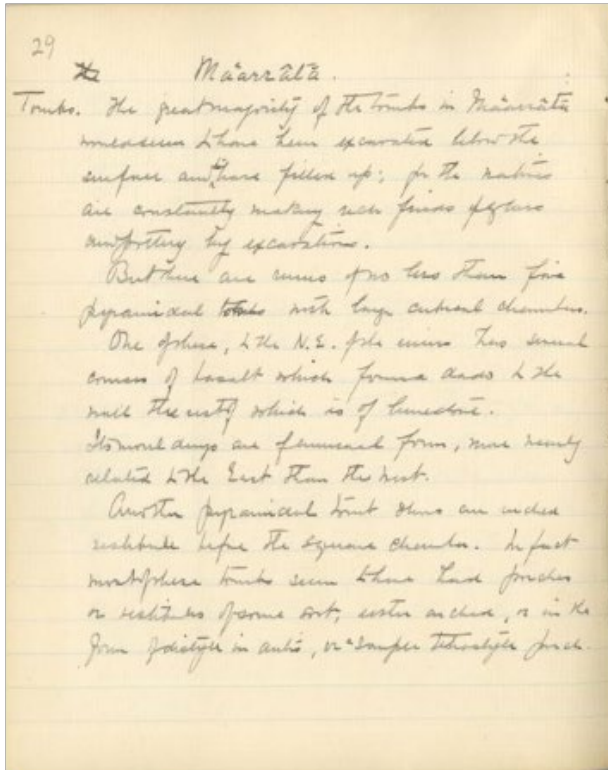 29
the Māarrātā.
Tombs. The great majority of the tombs in Māarrātā
would seem to have been excavated below the
surface and to have filled up; for the natives
are constantly making rich finds of glass
and pottery by excavations.
But there are ruins of no less than five
pyramidal tombs with large central chambers.
One of these, to the N.E. of the ruins has several
courses of basalt which form a dado to the
wall the rest of which is of limestone.
Its mouldings are of unusual form, more nearly
related to the East than the West.
Another pyramidal tomb shows an arched
vestibule before the square chamber. In fact
most of these tombs seem to have had porches
or vestibules of some sort, either arched, or in the
form of distyle in antis, or a simple tetrastyle porch.